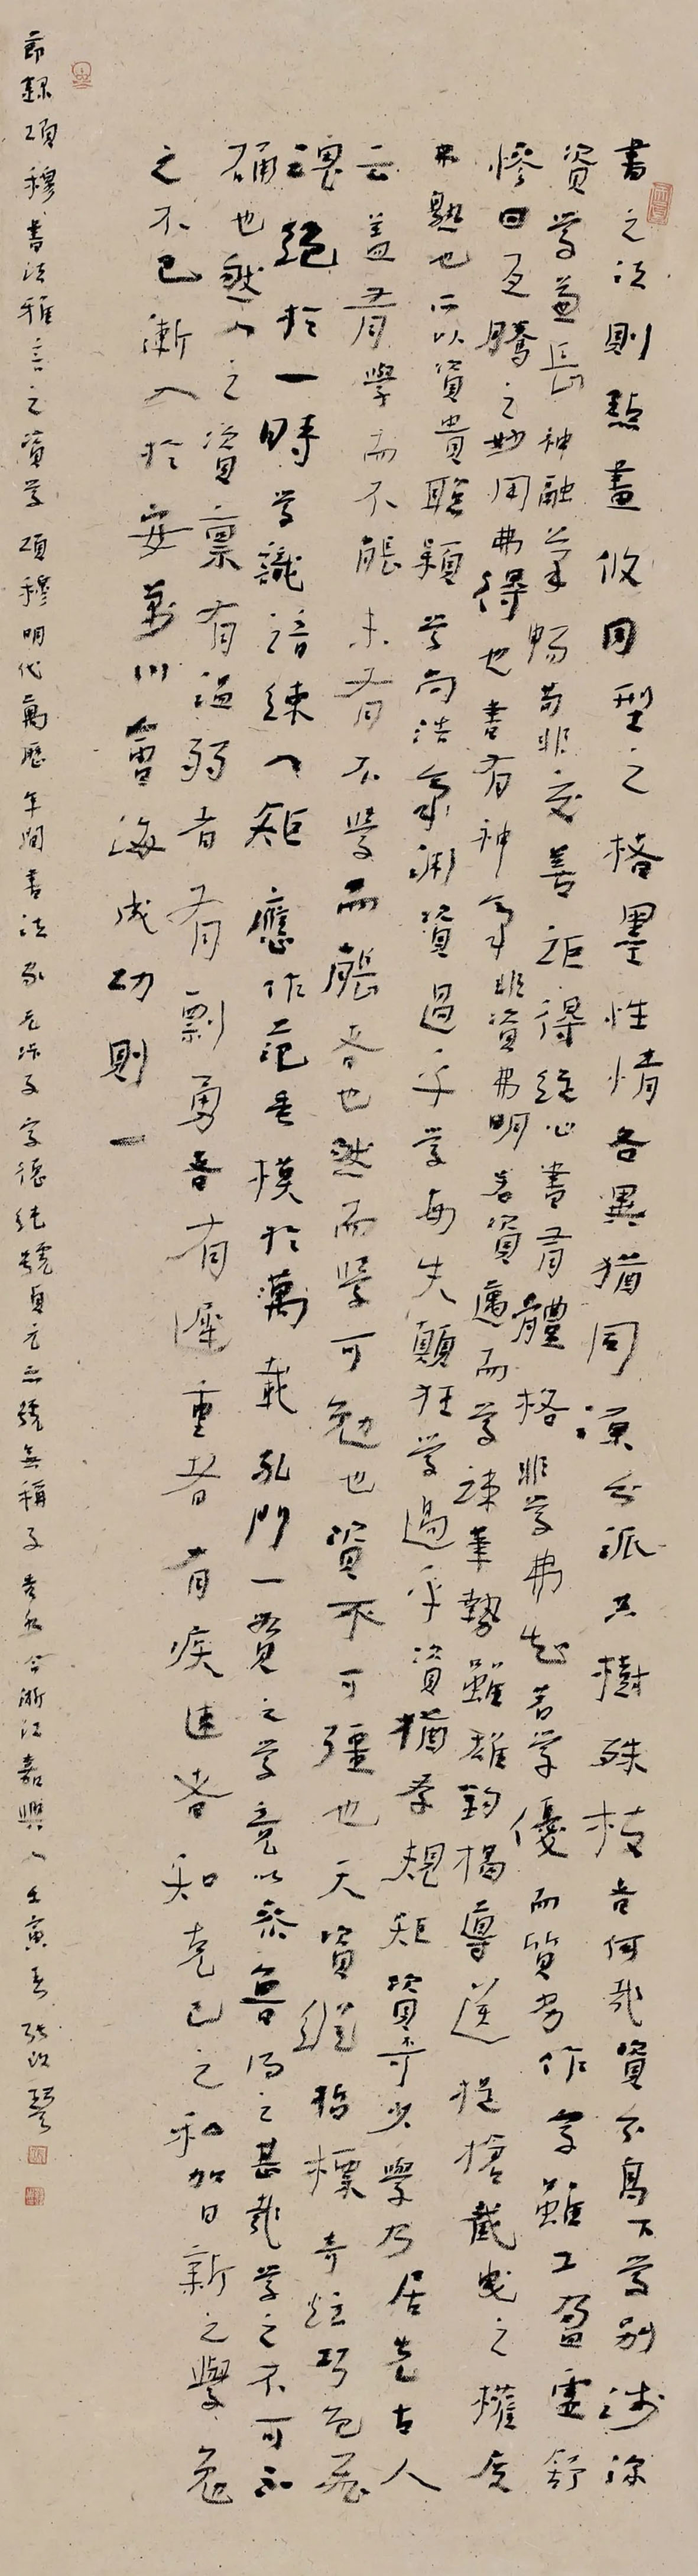 書之法則點畫攸同型之楮墨性情各異猶同源分派共樹殊枝者何哉資分高下學別淺深
資學兼長神融筆暢苟非交善詎得從心書有體格非學弗知若學優而質劣作字雖工盈虛舒
慘回互騰之妙用弗得也書有神氣非資弗明若資邁而學疎筆勢雖雄鉤揭導送提搶截曳之權度
弗熟也所以資貴聰穎學尚浩淵資過乎學每失顛狂學過乎資猶存規矩資奇少學乃居先古人
云蓋有學而不能未有不學而能者也然而學可勉也資不可彊也天資縱猶標奇炫巧色飛
魂絕於一時學識諳練入矩應作範垂模於萬載孔門一貫之學竟以參魯得之甚哉學之不可不
確也然人之資稟有溫弱者有剽勇者有遲重者有疾速者知克己之私加日新之學勉
之不已漸入於安萬川會海成功則一
節錄項穆書法雅言之資學項穆明代萬歷年間書法家元味子字德純號貞玄亦號無稱子秀水今浙江嘉興人壬寅春